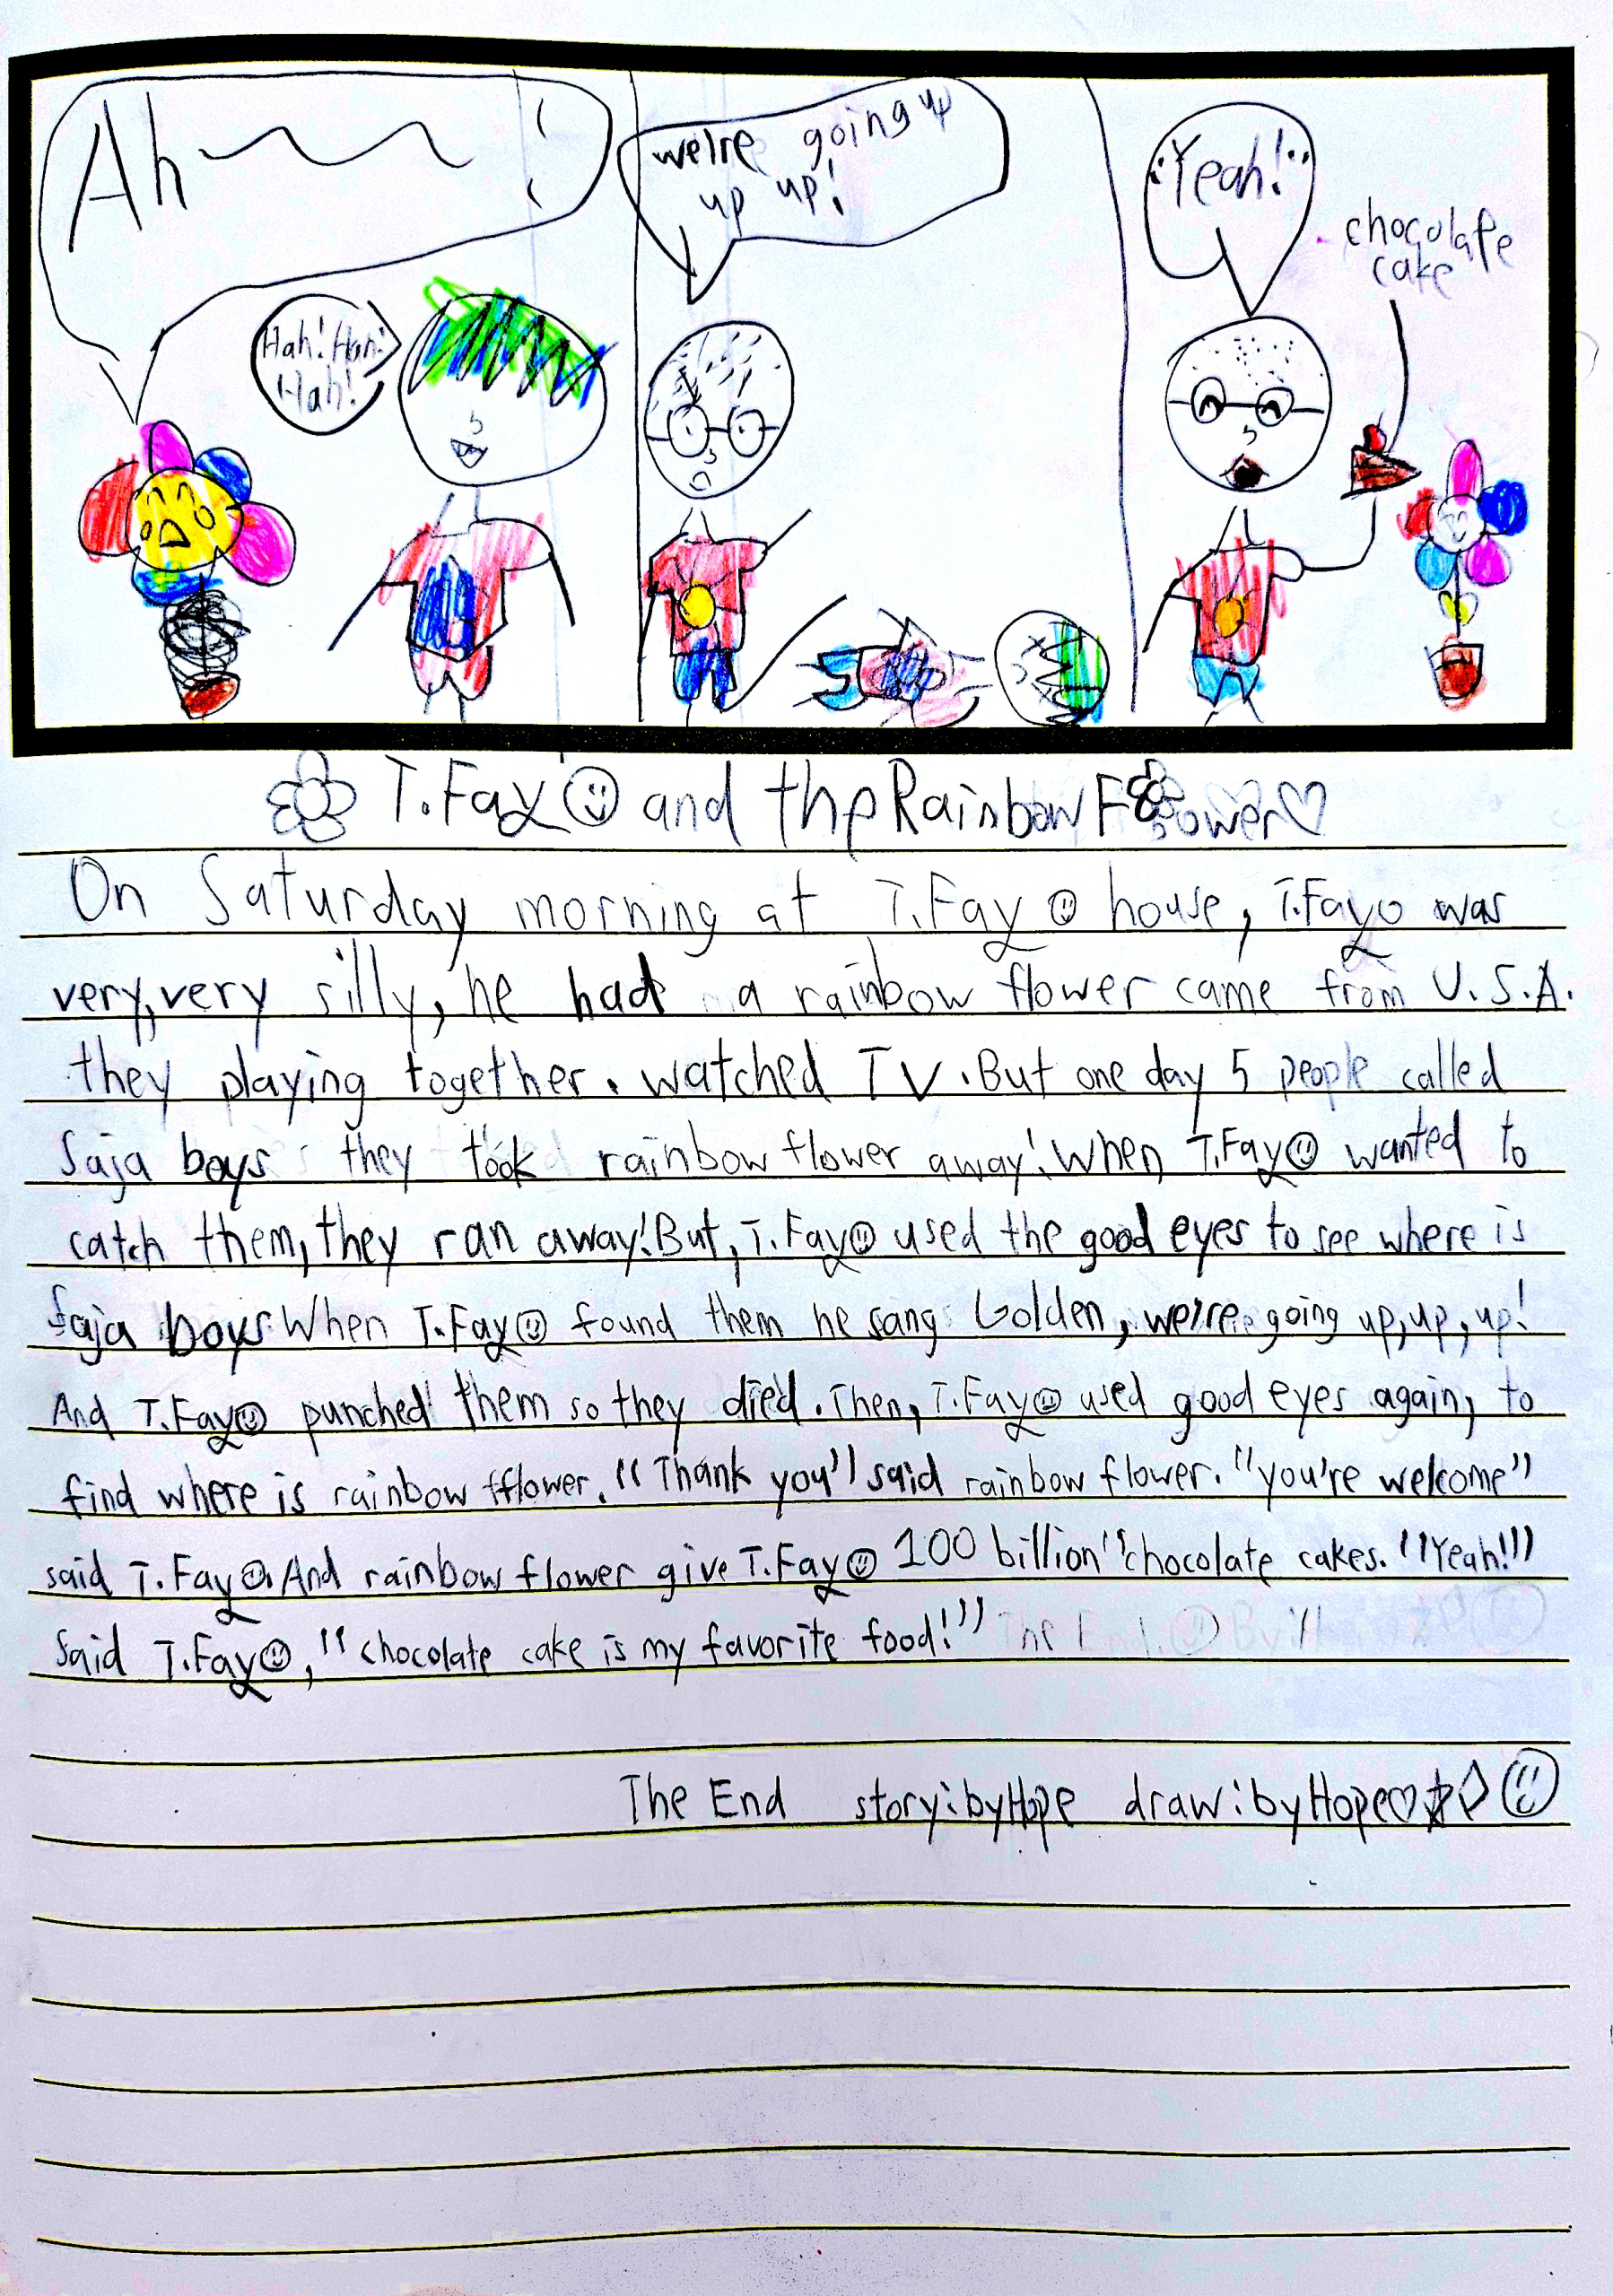 Ah
Hah! Hah!
Hah!
we're going up
up up!
Yeah!
chocolate
cake
T.Fay and the Rainbow Flower
On Saturday morning at T.Fay house, T.Fay was
very, very silly, he had a rainbow flower came from U.S.A.
they playing together. watched TV. But one day 5 people called
Saja boys they took rainbow flower away! When T.Fay wanted to
catch them, they ran away! But, T.Fay used the good eyes to see where is
Saja boys When T.Fay found them he sang Golden, we're going up, up, up!
And T.Fay punched them so they died. Then, T.Fay used good eyes again, to
find where is rainbow fflower. "Thank you" said rainbow flower. "you're welcome"
said T.Fay. And rainbow flower give T.Fay 100 billion "chocolate cakes. "Yeah!"
Said T.Fay, "chocolate cake is my favorite food!" The End. By:
The End story:by Hope draw:by Hope